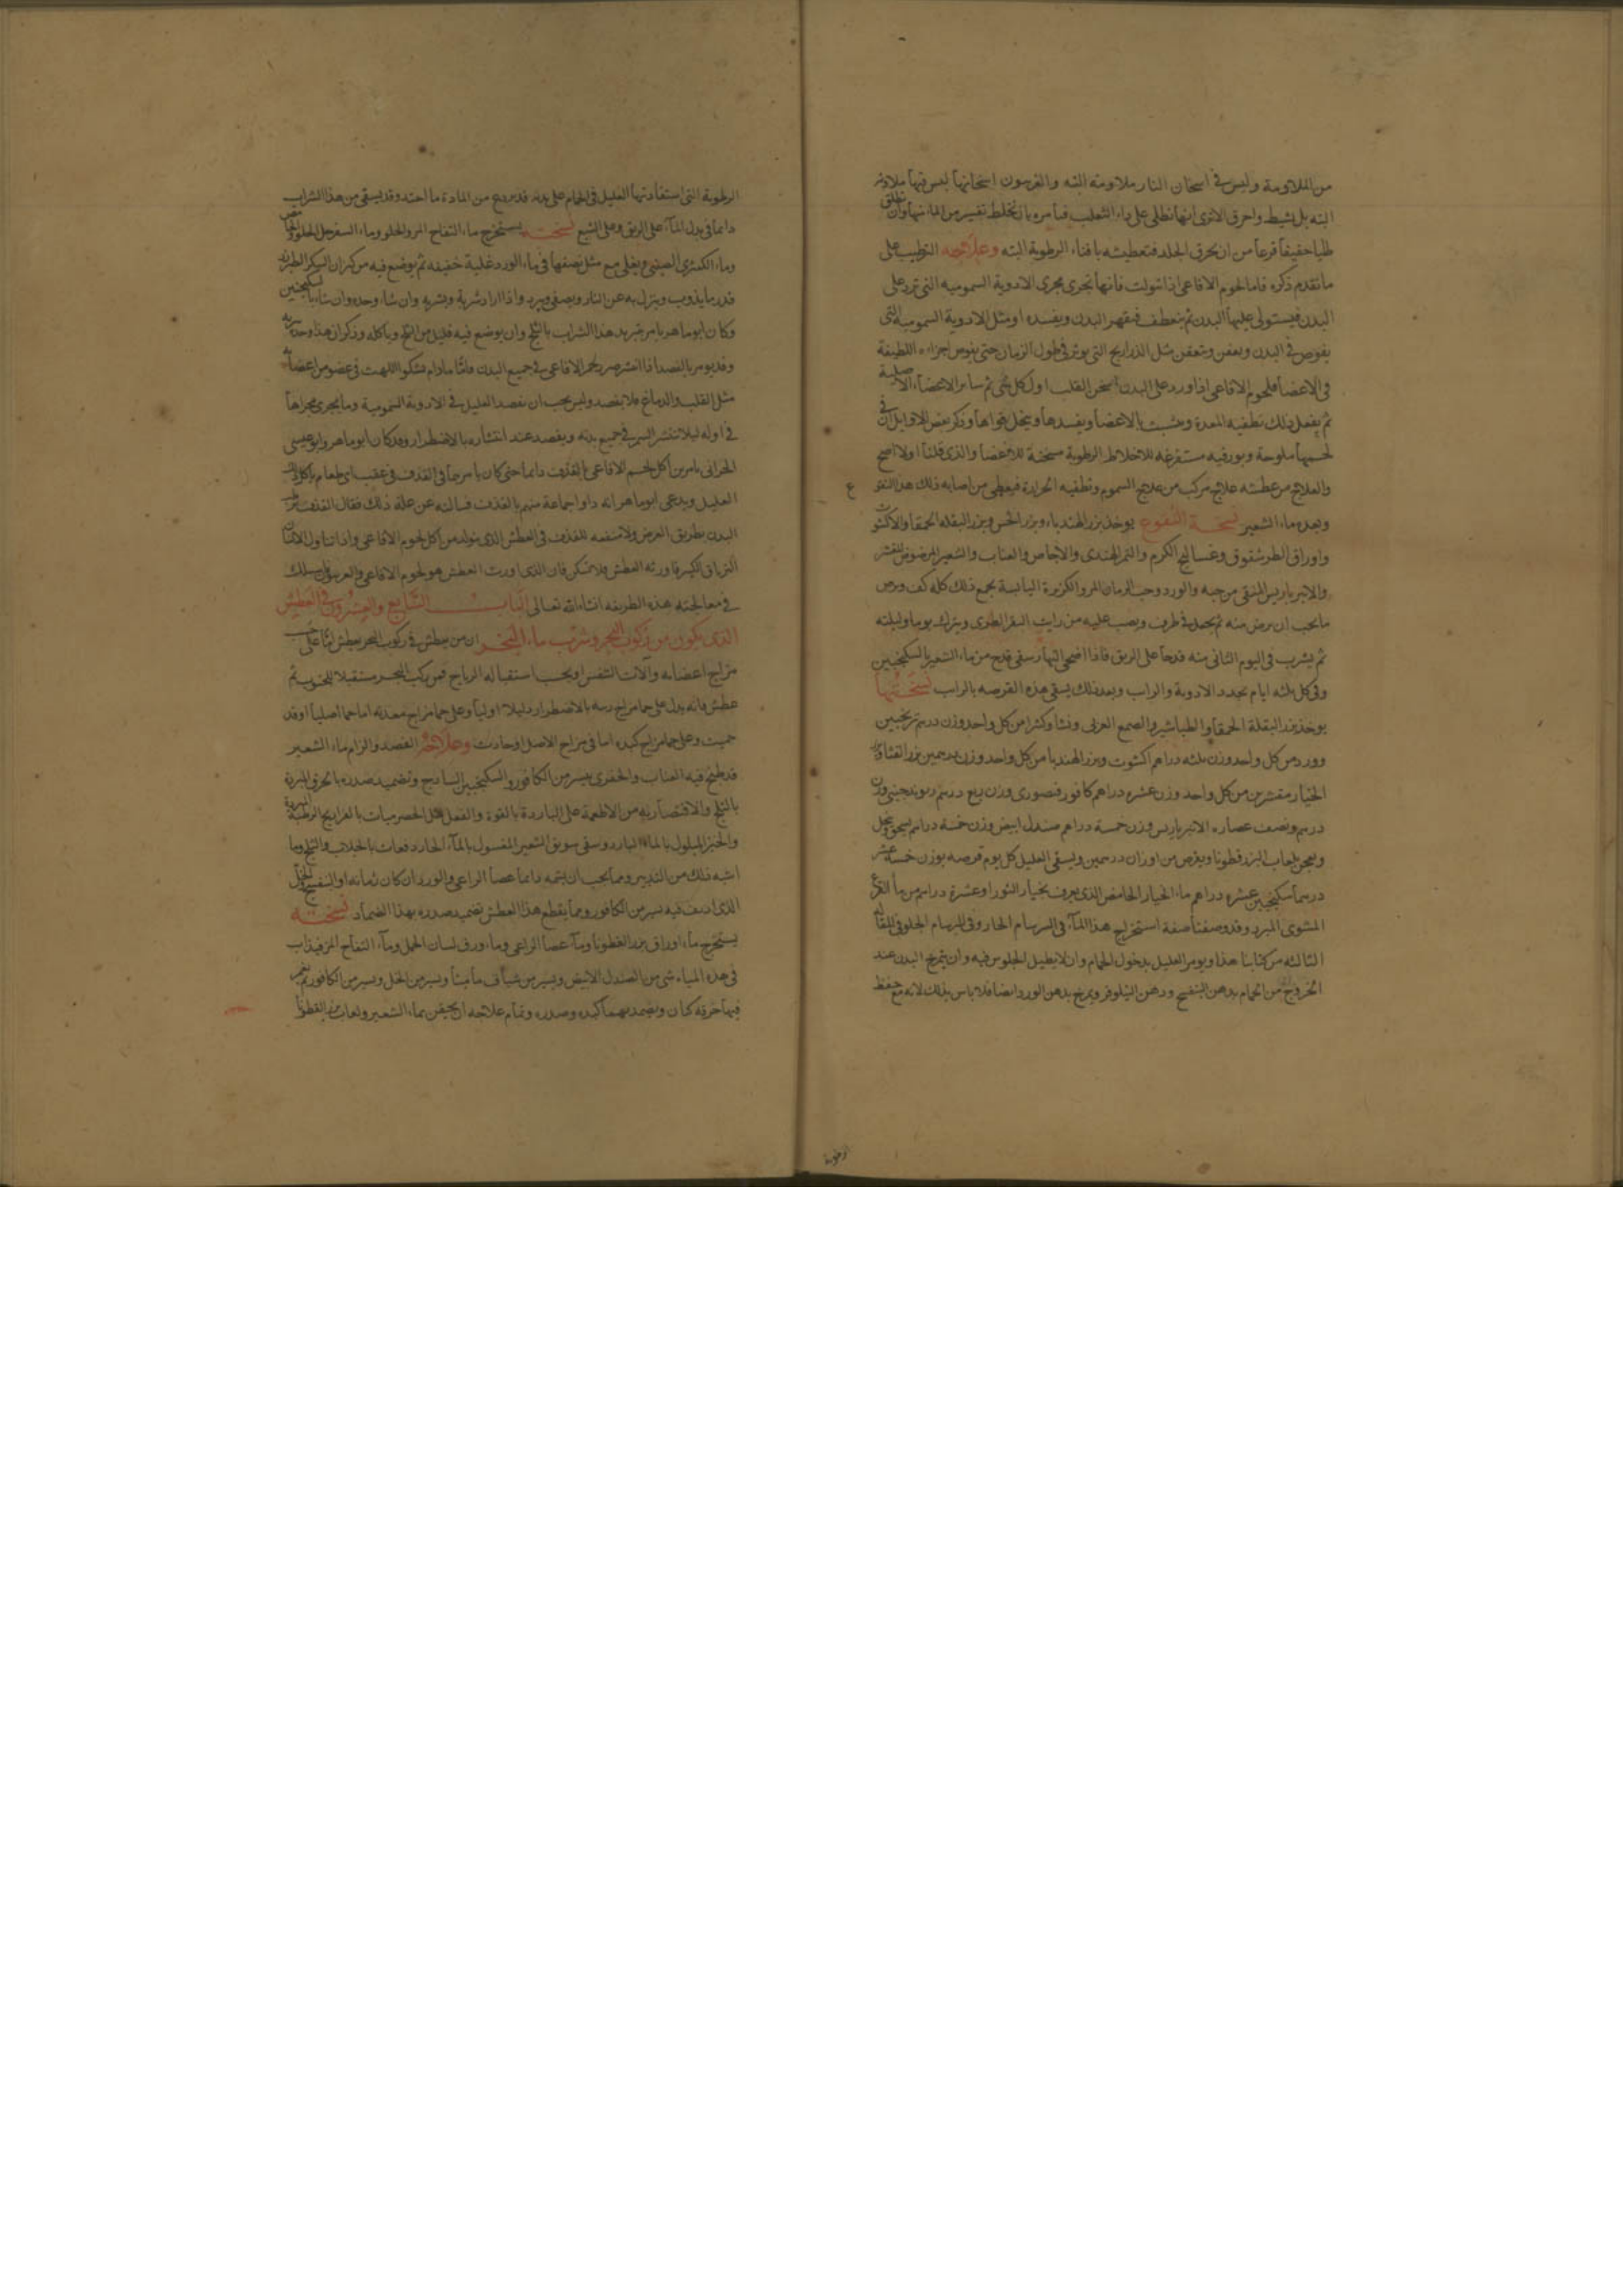 من الملاومة وليس في اسخان النار ملاومة البته والفربيون اسخانها ليس فيها ملاومة
البته بل تشيط واحرق الاترى انها تطلى على داء الثعلب فيأمره بان تخلط بقيسر من الماء فيها وان تطلق
طليا خفيفا فرعا من ان يحرق الجلد فتعطيشه بافناء الرطوبة البته وعلاجه الترطيب على
ما تقدم ذكره فاما لحوم الافاعي اذا تنوولت فانها تجرى مجرى الادوية السمومية التي ترد على
البدن فيستولى عليها البدن ثم ينعطف فيقهر البدن ويفسده او مثل الادوية السمومية التي
يغوص في البدن ويعفن وتعفن مثل الذراريح التي يوثر في طول الزمان حتى يغوص اجزاءه اللطيفة
في الاعضا فلحوم الافاعي اذا ورد على البدن اسخن القلب اول كل شي ثم ساير الاعضاء الاصلية
ثم يفعل ذلك بطفيه المعدة وتشبث بالاعضا ويفسدها ويحل قواها وذكر بعض الاوايل ان في
لحمها ملوحة وبورقيه مستفرغه للاخلاط الرطوبة مسخنة للاعضا والذي قلنا اولا اصح
والعلاج من عطشه علاج مركب من علاج السموم وتطفيه الحرارة فيعطى من اصابه ذلك هذا النقوع
وبعده ماء الشعير نسخة النقوع يوخذ بزر الهندباء وبزر الخس وبزر البقلة الحمقا والاكشوث
واوراق الطرشقوق وعساليج الكرم والتمر الهندي والاجاص والعناب والشعير المرضوض المقشر
والانبرباريس المنقى من حبه والورد وحب الرمان المز والكزبرة اليابسة يجمع ذلك كله كف ويرض
ما يجب ان يرض منه ثم يجعل في ظرف ويصب عليه من رايب البقر الطرى ويترك يوما وليلته
ثم يشرب في اليوم الثاني منه قدحا على الريق فاذا اضحى النهار سقى قدح من ماء الشعير بالسكنجبين
وفي كل ثلثه ايام يجدد الادوية والرايب وبعد ذلك يسقى هذه القرصه بالرايب نسختها
يوخذ بزر البقلة الحمقا والطباشير والصمغ العربي ونشا وكثيرا من كل واحد وزن درهم ترنجبين
وورد من كل واحد وزن ثلثه دراهم اكشوث وبزر الهندبا من كل واحد وزن درهمين بزر القثا وبزر
الخيار مقشرين من كل واحد وزن عشره دراهم كافور قنصورى وزن ربع درهم ريوند صيني وزن
درهم ونصف عصاره الانبرباريس وزن خمسة دراهم صندل ابيض وزن خمسة دراهم يسحق وينخل
ويعجن بلعاب البزر قطونا ويقرص من اوزان درهمين ويسقى العليل كل يوم قرصه بوزن خمسة عشر
درهما سكنجبين وعشره دراهم ماء الخيار الحامض الذي يعرف بخيار الثور او عشرة دراهم من ماء القرع
المشوى المبرد وقد وصفنا صفة استخراج هذا الماء في السرسام الحار وفي البرسام الجلوفي للمقالة
الثالثه من كتابنا هذا ويومر العليل بدخول الحمام وان لا يطيل الجلوس فيه وان يتمرخ البدن عند
الخروج من الحمام بدهن البنفسج ودهن النيلوفر ويمرخ بدهن الورد ايضا فلا باس بذلك لانه مع حفظ
الرطوبة
الرطوبة التي استفادتها العليل في الحمام على بدنه قد يردع من المادة ما احتد وقد يسقى من هذا الشراب
دائما في بدل الماء على الريق وعلى الشبع نسخته يستخرج ماء التفاح المز والحلو وماء السفرجل الحلو والحامض
وماء الكمثرى الصيني ويغلى مع مثل نصفها في ماء الورد غلية خفيفه ثم يوضع فيه من كيزان السكر الطبرزد
قدر ما يذوب وينزل به عن النار ويصفى ويبرد واذا اراد شربة ويشربه وان شاء وحده وان شاء بالسكنجبين
وكان ابو ماهر يامر بتبريد هذا الشراب بالثلج وان يوضع فيه قليل من الثلج وياكله وذكر ان هذا وحده يبريه
وقد يومر بالفصد اذا انتشر ضرر لحم الافاعي في جميع البدن فاما مادام يشكو اللهب في عضو من اعضائه
مثل القلب والدماغ فلا يفصد وليس يجب ان يفصد العليل في الادوية السمومية وما يجرى مجراها
في اوله لئلا تنتشر السم في جميع بدنه ويفصد عند انتشاره بالاضطرار وقد كان ابو ماهر وابو عيسى
الحراني يامر من اكل لحم الافاعي بالقذف دائما حتى كان يامرها في القذف في عقيب اي طعام ياكله
العليل ويدعى ابو ماهر انه داوا جماعة منهم بالقذف فسالته عن علة ذلك فقال القذف يرطب
البدن بطريق العرض ولا منفعه للقذف في العطش الذي يتولد من اكل لحوم الافاعي واذا تناول الانسان
الترياق الكبير فاورثه العطش فلا تشكن فان الذي اورث العطش هو لحوم الافاعي والفربيون فاسلك
في معالجته بهذه الطريقه انشاء الله تعالى الباب السابع والعشرون في العطش
الذي يكون من ركوب البحر وشرب ماء البحر ان من يعطش في ركوب البحر يعطش اما على حسب
مزاج اعضائه وآلات التنفس او بحسب استقباله الرياح فمن ركب البحر مستقبلا للجنوب ثم
عطش فانه يدل على حما مزاج ريته بالاضطرار دليلا اوليا وعلى حما مزاج معدته اما حما اصليا او قد
حميت وعلى حما مزاج كبده اما في مزاج الاصل او حادث وعلاجه الفصد والزام ماء الشعير
قد طبخ فيه العناب والحقرى بيسير من الكافور والسكنجبين الساذج وتضميد صدره بالخرق المبردة
بالثلج والاقتصار به من الاطعمة على الباردة بالقوة والفعل مثل الحصرميات بالفراريج الرطبة المبردة
والخبز المبلول بالماء البارد وسقى سويق الشعير المغسول بالماء الحار دفعات بالجلاب والثلج وما
اشبه ذلك من التدبير ومما يجب ان يشمه دائما عصا الراعي والورد ان كان زمانه او البنفسج والخل
الذي اديف فيه يسير من الكافور ومما يقطع هذا العطش تضميد صدره بهذا الضماد نسخته
يستخرج ماء اوراق بزر القطونا وماء عصا الراعي وماء ورق لسان الحمل وماء التفاح المز فيذاب
في هذه المياه شي من الصندل الابيض ويسير من شياف ماميثا ويسير من الخل ويسير من الكافور ثم يغمر
فيها خرقة كتان ويضمد بهما كبده وصدره وتمام علاجه ان يحقن بماء الشعير ولعاب بزر القطونا